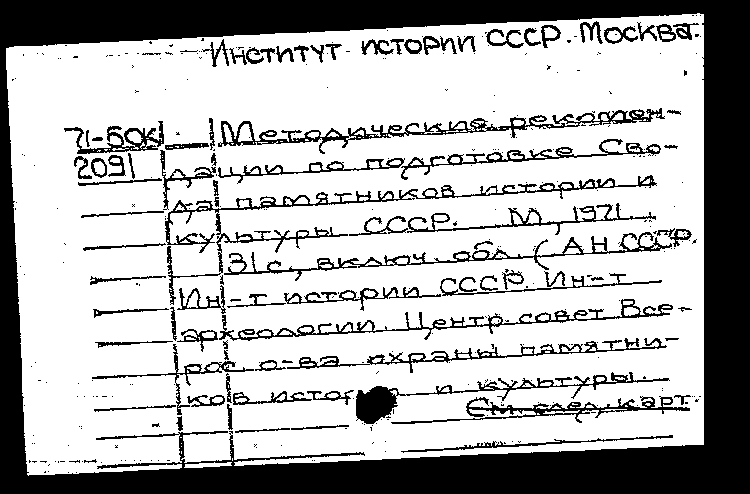 Институт истории СССР. Москва.
71-БОК Методические рекомен-
2091 дации по подготовке Сво-
да памятников истории и
культуры СССР. М., 1971.
31 с., включ. обл. (АН СССР.
Ин-т истории СССР. Ин-т
археологии. Центр. совет Все-
рос. о-ва охраны памятни-
ков истории и культуры.
См. след. карт.